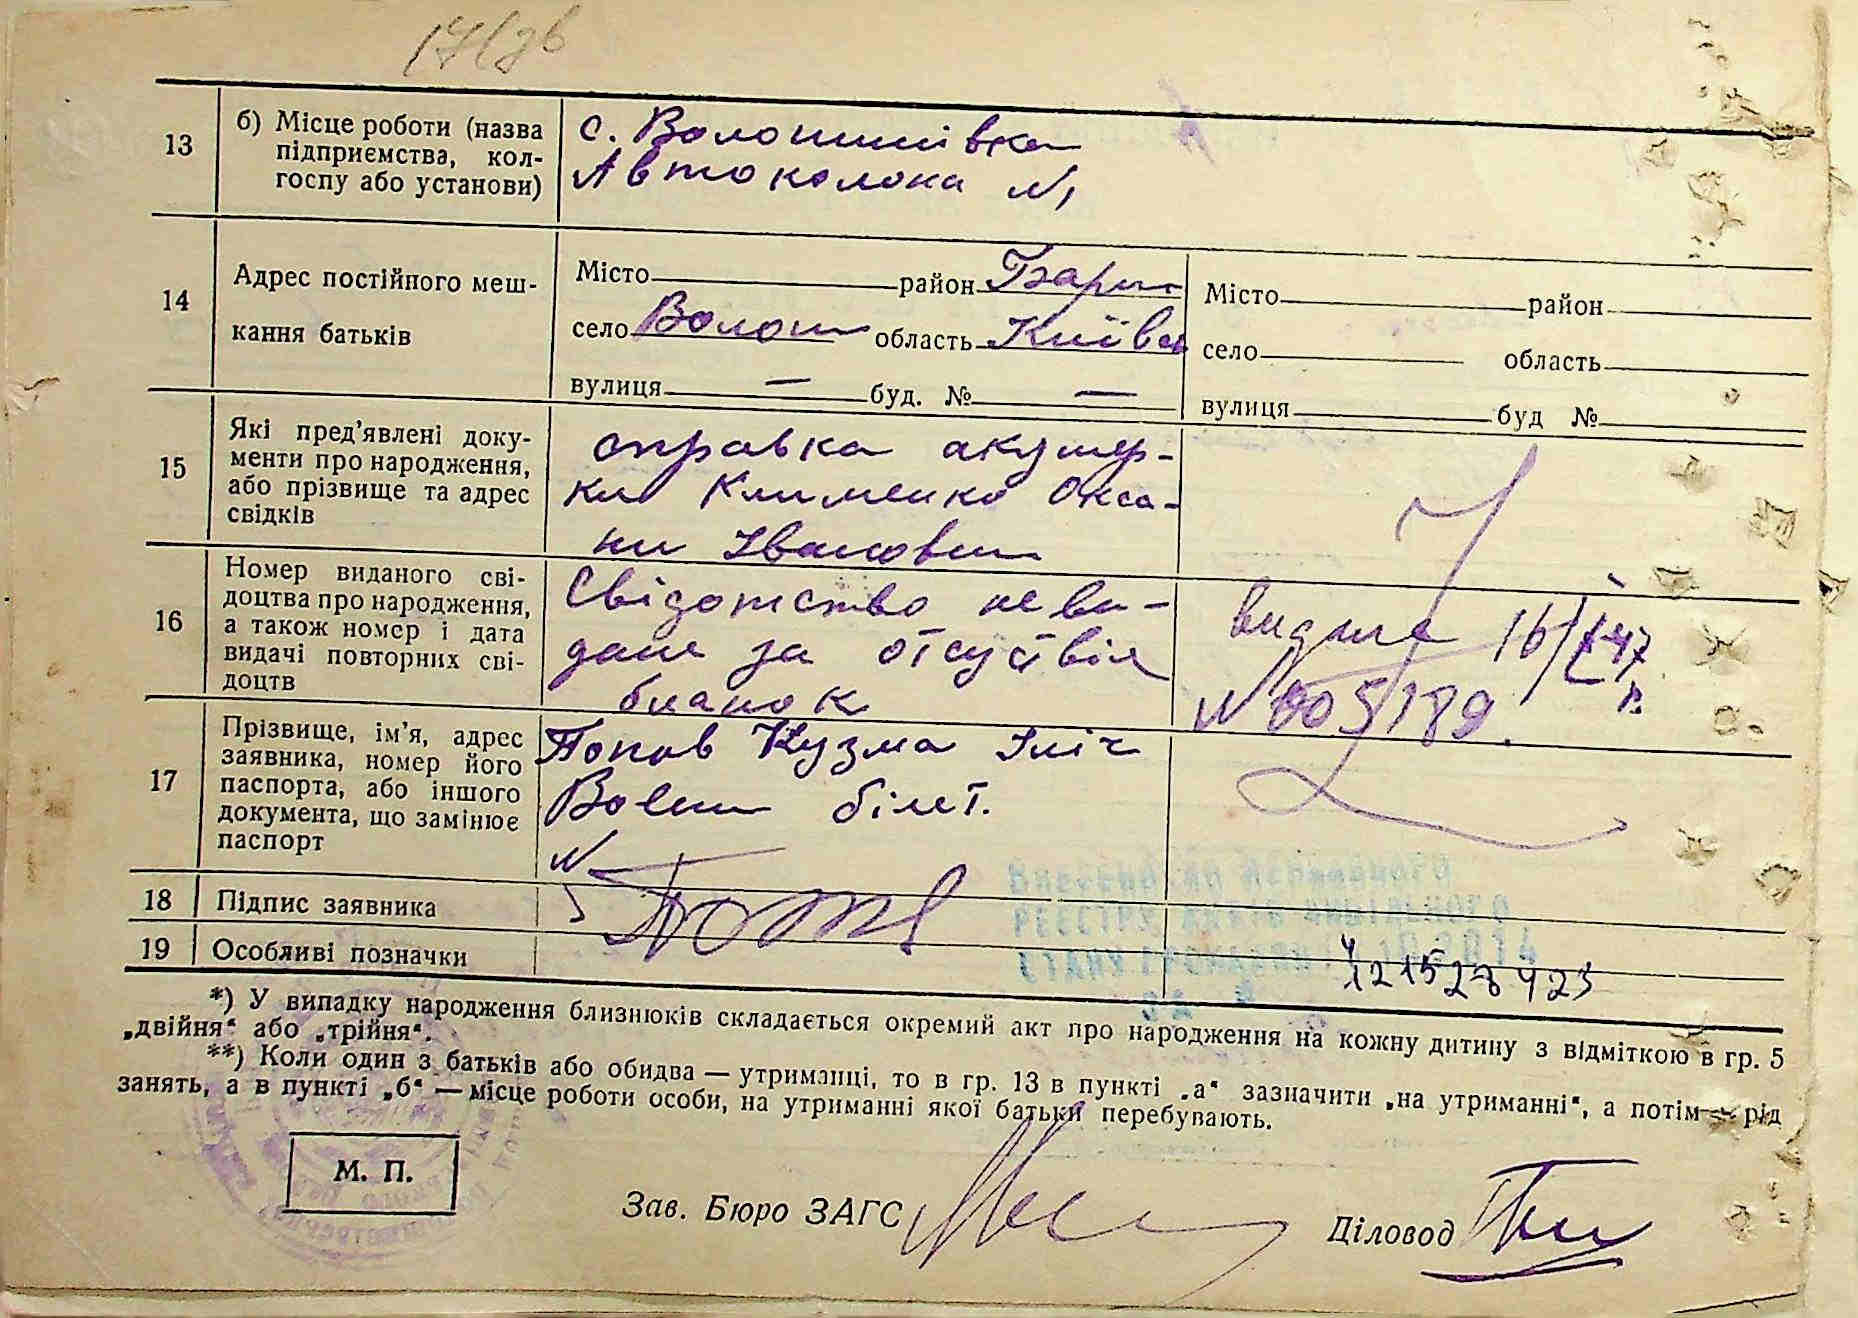 17/зв
13 б) Місце роботи (назва підприємства, колгоспу або установи) с. Волошинівка
Автоколона №1
14 Адрес постійного меш-
кання батьків
Місто район Бариш
село Волош область Київск
вулиця — буд. № —
Місто район
село область
вулиця буд №
15 Які пред'явлені доку-
менти про народження,
або прізвище та адрес
свідків
справка акушер-
ки Клименко Окса-
ни Івановни
16 Номер виданого сві-
доцтва про народження,
а також номер і дата
видачі повторних сві-
доцтв
Свідотство не ви-
дане за отсуствія
бланок
видане 16/I-47 р.
№ 005189.
17 Прізвище, ім'я, адрес
заявника, номер його
паспорта, або іншого
документа, що замінює
паспорт
Попов Кузма Іліч
Воен білет.
№
18 Підпис заявника
19 Особливі позначки
ВНЕСЕНО ДО ДЕРЖАВНОГО
РЕЄСТРУ АКТІВ ЦИВІЛЬНОГО
СТАНУ ГРОМАДЯН
*) У випадку народження близнюків складається окремий акт про народження на кожну дитину з відміткою в гр. 5
„двійня“ або „трійня“.
**) Коли один з батьків або обидва — утриманці, то в гр. 13 в пункті „а“ зазначити „на утриманні“, а потім — рід
занять, а в пункті „б“ — місце роботи особи, на утриманні якої батьки перебувають.
М. П.
Зав. Бюро ЗАГС
Діловод